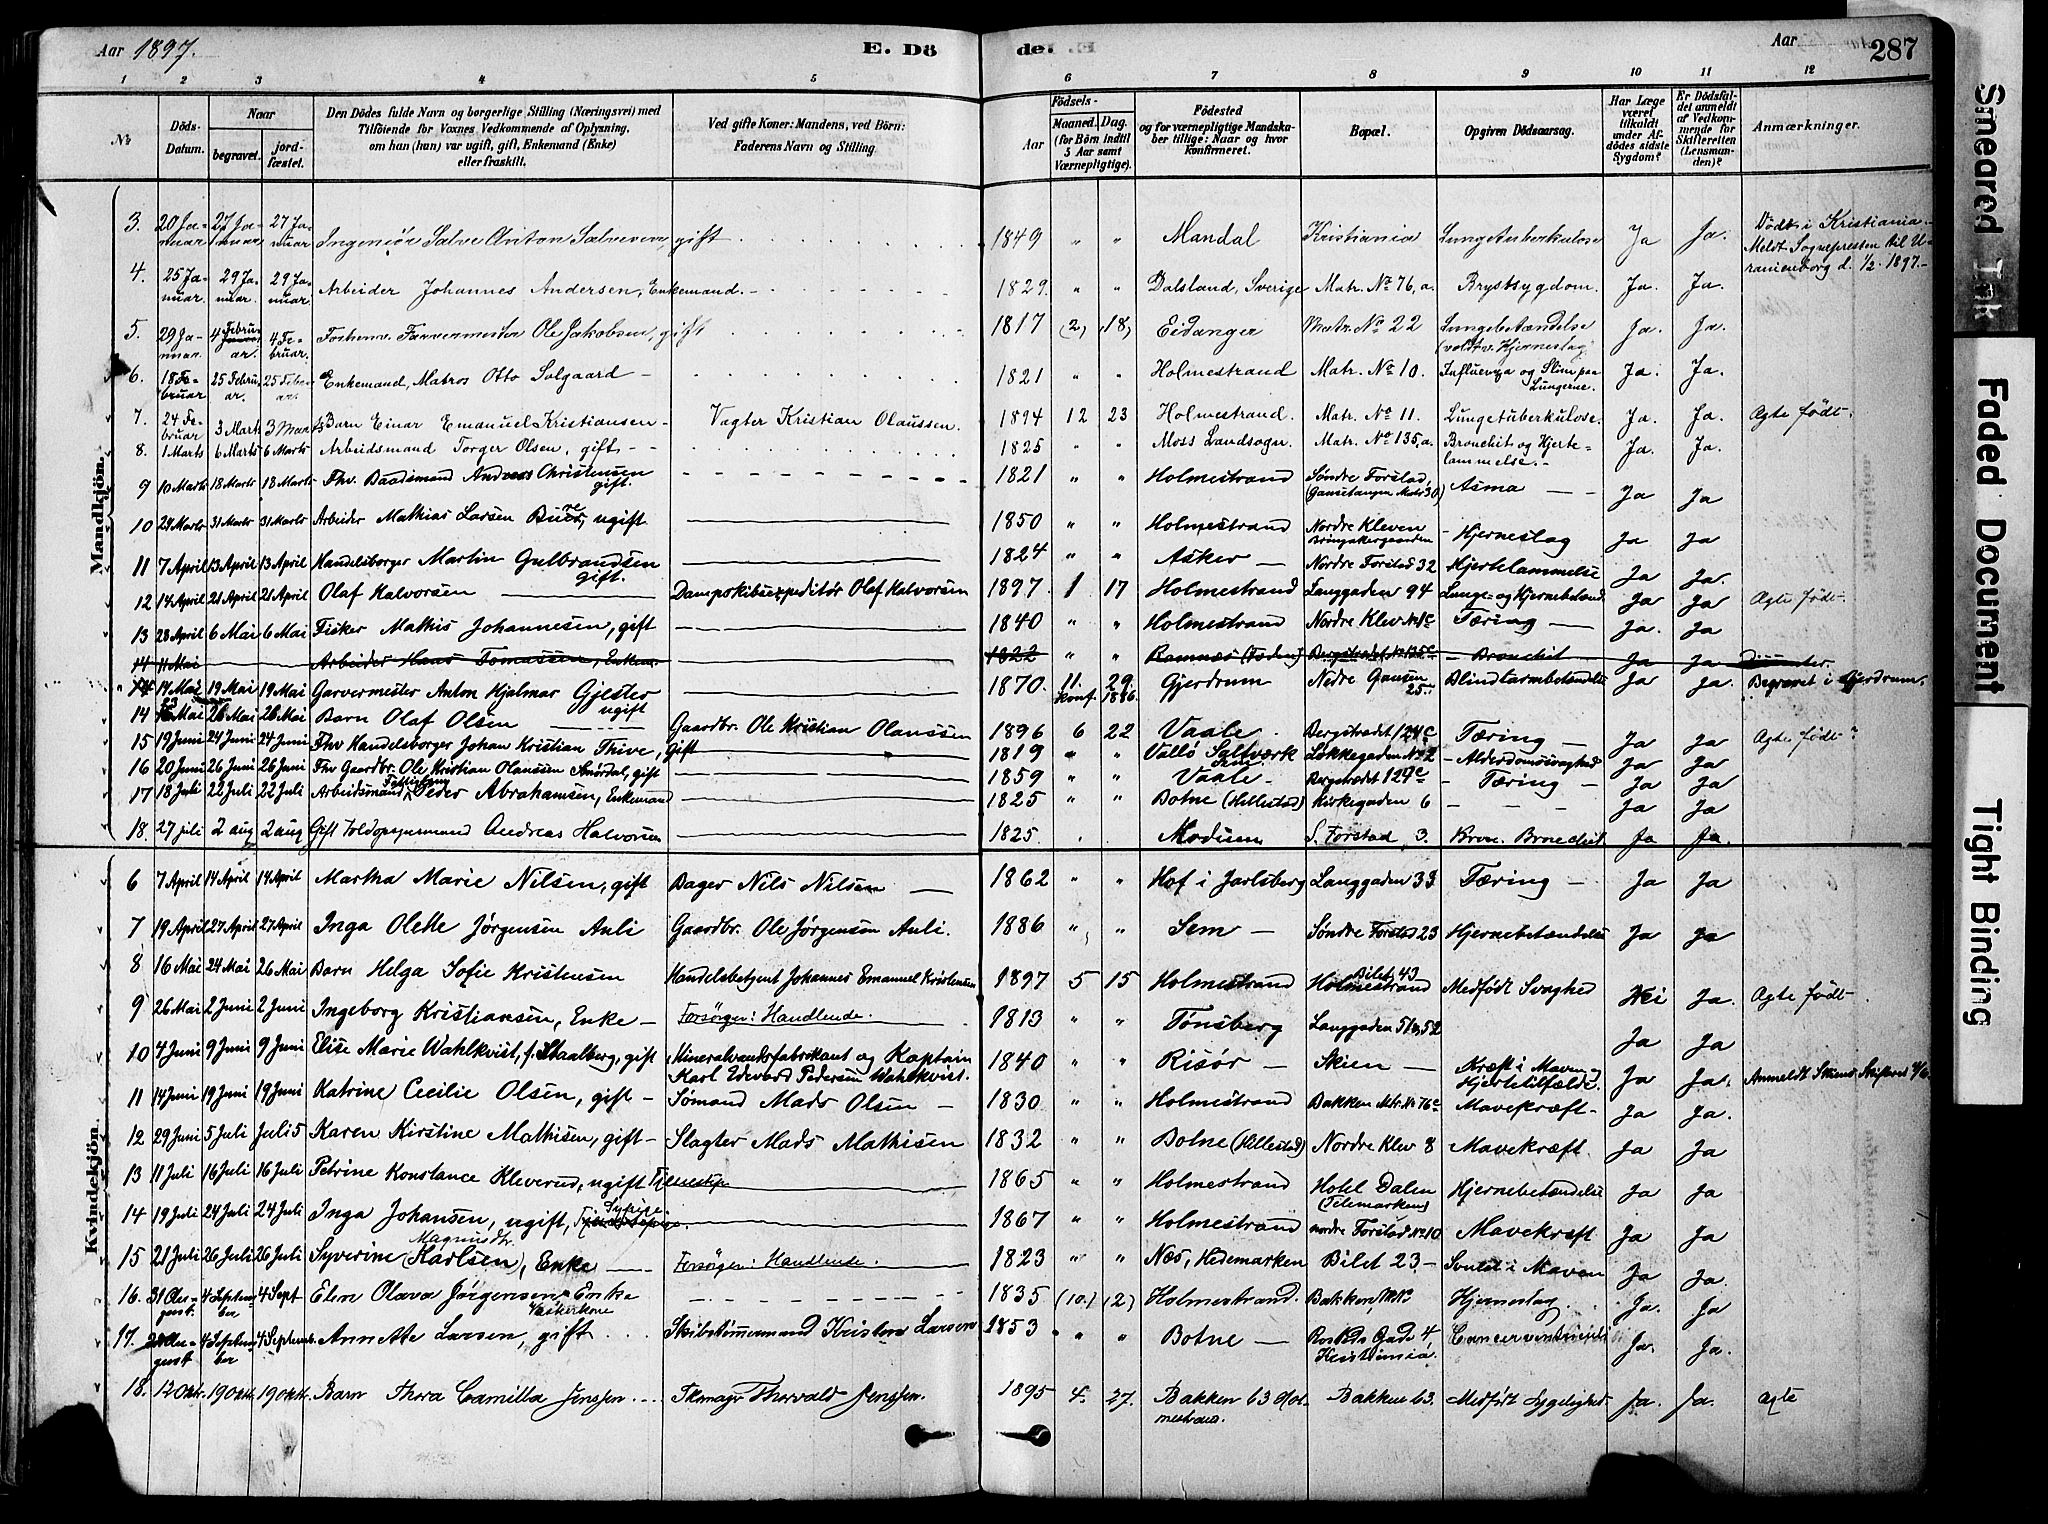 Aar 1897.
E. Dö
de. E
Aar
287
1 2 3 4 5 6 7 8 9 10 11 12
No
Döds-Datum.
Naar
begravet.
jordfæstet.
Den Dödes fulde Navn og borgerlige Stilling (Næringsvei) med
Tilföiende for Voxnes Vedkommende af Oplysning,
om han (hun) var ugift, gift, Enkemand (Enke)
eller fraskilt.
Ved gifte Koner: Mandens, ved Börn:
Faderens Navn og Stilling.
Födsels-
Aar
Maaned. Dag.
(for Börn indtil
5 Aar samt
Værnepligtige).
Födested
og for værnepligtige Mandska-
ber tillige: Naar og hvor
konfirmeret.
Bopæl.
Opgiven Dödsaarsag.
Har Læge
været
tilkaldt
under Af-
dödes sidste
Sygdom?
Er Dödsfal-
det anmeldt
af Vedkom-
mende for
Skifteretten
(Lensman-
den)?
Anmærkninger.
Mandkjön.
3. 20 Januar 27 Januar 27 Januar Ingeniör Salve Anton Salvesen, gift 1849 " " Mandal Kristiania Lungetuberkulose Ja Ja. Dödt i Kristiania. Meldt Sognepresten til Uranienborg d. 1/2 1897.
4. 25 Januar. 29 Januar. 29 Januar. Arbeider Johannes Andersen, Enkemand. 1829. " " Dalsland, Sverige Matr. No 76, a. Brystsygdom. Ja. Ja.
5. 29 Januar. 4 Februar. 4 Februar. Forhenv. Farvermester Ole Jakobsen, gift 1817 (2) 18) Eidanger Matr. No 22 Lungebetændelse (voldt v. Hjerneslag) Ja. Ja.
6. 18 Februar 25 Februar. 25 Februar. Enkemand, Matros Otto Solgaard 1821 " " Holmestrand Matr. No 10. Influenza og Slim paa Lungerne. Ja. Ja.
7. 24 Februar 3 Marts 3 Marts Barn Einar Emanuel Kristiansen Vagter Kristian Olaussen. 1894 12 23 Holmestrand. Matr. No 11. Lungetuberkulose. Ja. Ja. Ægte født.
8. 1 Marts 6 Marts 6 Marts Arbeidsmand Torger Olsen, gift 1825 " " Moss Landsogn. Matr. No 135, a. Bronchit og Hjertelammelse. Ja. Ja.
9 10 Marts 18 Marts 18 Marts Fhv. Baadsmand Andreas Christensen gift. 1821 " " Holmestrand Søndre Forstad, (Gausetangen Matr 30) Asma Ja Ja
10 24 Marts 31 Marts 31 Marts Arbeider Mathias Larsen ugift 1850 " " Holmestrand Nordre Kleven Hjerneslag Ja Ja
11 7 April 13 April 13 April Handelsborger Martin Gulbrandsen gift. 1824 " " Asker Nordre Forstad 32 Hjertelammelse Ja Ja.
12 14 April 21 April 21 April Olaf Halvorsen Dampskibsexpeditör Olaf Halvorsen 1897 1 17 Holmestrand Langgaden 94 Lunge- og Hjernebetænd. Ja Ja Ægte født.
13 28 April 6 Mai 6 Mai Fisker Mathis Johannesen, gift 1840 " " Holmestrand Nordre Klev Tæring Ja. Ja
14 11 Mai Arbeider Hans Tomassen, Enkem. 1822 " " Ramnæs (Foden) Bergstrædet No 135 c Bronchit Ja Ja
14 14 Mai 19 Mai 19 Mai Garvermester Anton Hjalmar Gjester ugift 1870. 11. 29. konf. 1886. Gjerdrum Nedre Gausen 25 Blindtarmbetændelse Ja Ja. Begravet i Gjerdrum.
14 Mai 26 Mai 26 Mai Barn Olaf Olsen Gaardbr. Ole Kristian Olaussen 1896 6 22 Vaale Bergstrædet 124 c Tæring Ja Ja Ægte født
15 19 Juni 24 Juni 24 Juni Fhv Handelsborger Johan Kristian Thive, gift 1819 " " Vallö Saltværk Sem Løkkegaden No 2 Alderdomssvaghed Ja Ja
16 20 Juni 26 Juni 26 Juni Fhv Gaardbr. Ole Kristian Olaussen Smørdal, gift 1859 " " Vaale Bergstrædet 129 c Tæring Ja Ja
17 18 Juli 22 Juli 22 Juli Arbeidsmand Fattiglem Peder Abrahamsen, Enkemand 1825 " " Botne (Hillestad) Kirkegaden 6 Ja Ja
18. 27 juli 2 aug 2 aug Gift Toldopsynsmand Andreas Halvorsen 1825. Modum S. Forstad, 3. Kron. Bronchit Ja Ja.
Kvindekjön.
6 7 April 14 April 14 April Martha Marie Nilsen, gift Bager Nils Nilsen 1862 " " Hof i Jarlsberg Langgaden 33 Tæring Ja Ja
7 19 April 27 April 27 April Inga Olette Jørgensen Auli Gaardbr. Ole Jørgensen Auli. 1886 " " Sem Søndre Forstad 23 Hjernebetændelse Ja Ja
8 16 Mai 24 Mai 26 Mai Barn Helga Sofie Kristensen Handelsbetjent Johannes Emanuel Kristensen 1897 5 15 Holmestrand Bilet 43 Holmestrand Medfødt Svaghed Nei Ja. Ægte født.
9 26 Mai 2 Juni 2 Juni Ingeborg Kristiansen, Enke Forsörger: Handlende. 1813 " " Tønsberg Langgaden 51 & 52 Ja Ja
10 4 Juni 9 Juni 9 Juni Elise Marie Wahlkvist, f. Staalberg, gift Mineralvandsfabrikant og Kaptein Karl Edevard Pedersen Wahlkvist. 1840 " " Risör Skien Kræft i Maven og Hjertetilfælde. Ja Ja. Anmeldt Skiens Skifteret
11 14 Juni 19 Juni 19 Juni Katrine Cecilie Olsen, gift Sømand Mads Olsen 1830 " " Holmestrand Bakken Mtr. No 76 c Mavekræft Ja Ja.
12 29 Juni 5 Juli Juli 5 Karen Kirstine Mathisen, gift Slagter Mads Mathisen 1832 " " Botne (Hillestad) Nordre Klev 8 Mavekræft. Ja Ja
13 11 Juli 16 Juli 16 Juli Petrine Konstance Kleverud, ugift Tjenestepige 1865 " " Holmestrand Hotel Dalen (Telemarken) Hjernebetændelse Ja Ja
14 19 Juli 24 Juli 24 Juli Inga Johansen, ugift, Sypige Tjenestepige. 1867 " " Holmestrand nordre Forstad No 10 Mavekræft Ja Ja
15 21 Juli 26 Juli 26 Juli Syverine Magnusdtr. (Karlsen), Enke Forsörger: Handlende. 1823 " " Næs, Hedemarken Bilet 23 Svulst i Maven Ja Ja
16. 31 August 4 September 4 Sept Elen Olava Jørgensen Enke Vaskerkone 1835 (10.) (2) Holmestrand. Bakken, Hjerneslag. Ja. Ja
17. August 4 September 4 Septemb. Annette Larsen, gift Skibstømmermand Kristen Larsen 1853 " " Botne Gade 4, Kristiania. Cancer ventriculi Ja. Ja.
18. 12 Okt. 19 Okt. 19 Okt. Barn Thora Camilla Jenssen Thorvald Jenssen. 1895 4. 27. Bakken 63 Holmestrand. Bakken 63. Medfødt Sygelighed Ja. Ja. Ægte
Smeared Ink
Faded Document
Tight Binding